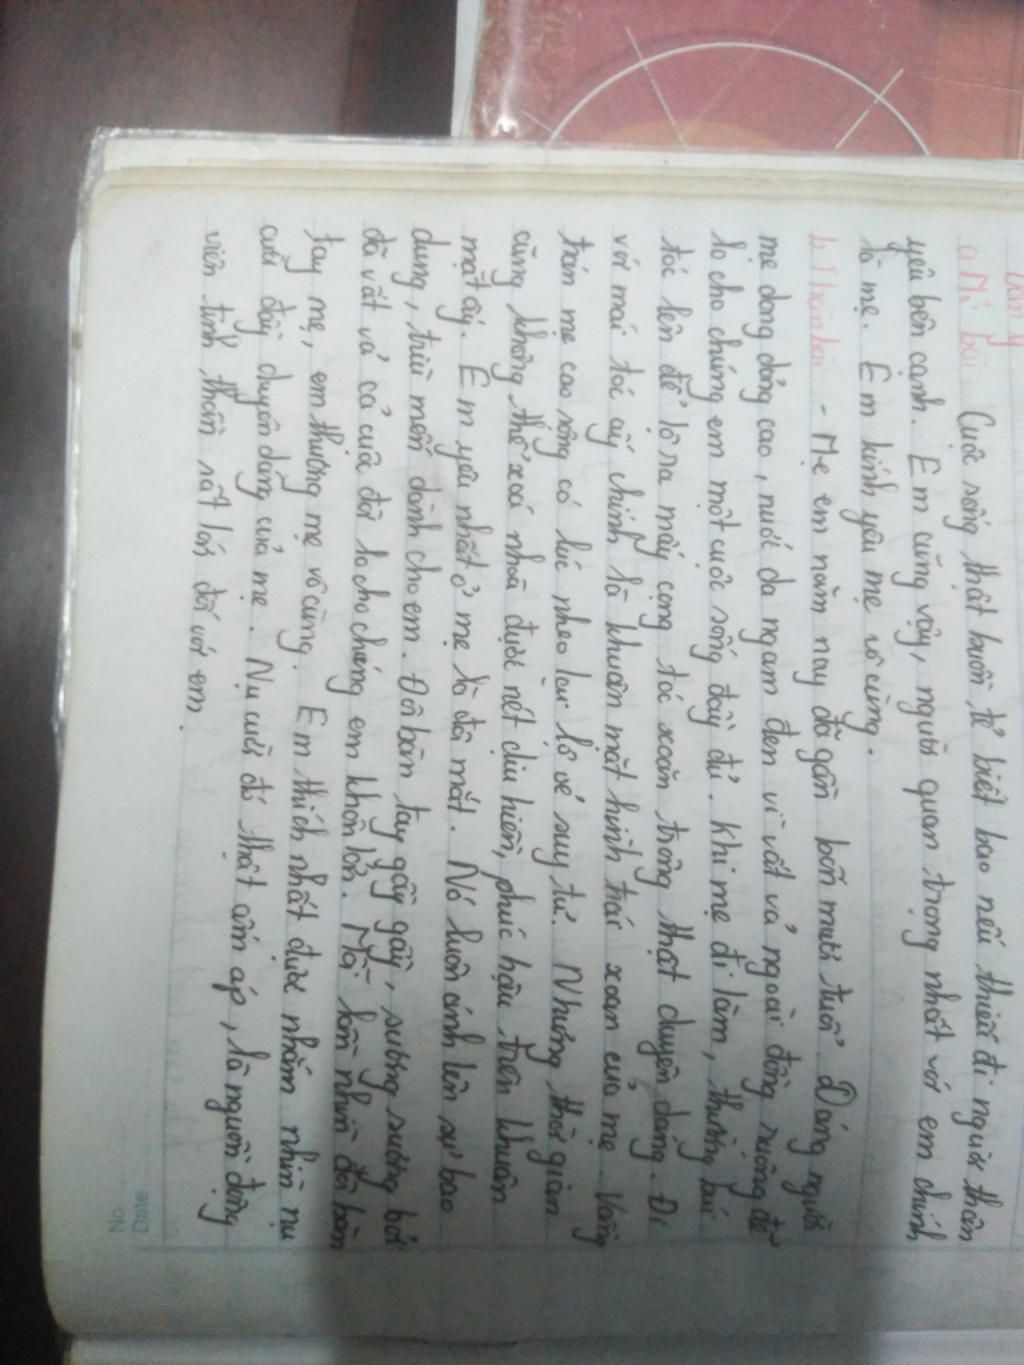 Dàn ý
a Mở bài. Cuộc sống thật buồn tẻ biết bao nếu thiếu đi người thân
yêu bên cạnh. Em cũng vậy, người quan trọng nhất với em chính
là mẹ. Em kính yêu mẹ vô cùng.
b. Thân bài - Mẹ em năm nay đã gần bốn mươi tuổi. Dáng người
mẹ dong dỏng cao, nước da ngam đen vì vất vả ngoài đồng ruộng để
lo cho chúng em một cuộc sống đầy đủ. Khi mẹ đi làm, thường búi
tóc lên để lộ ra mấy cọng tóc xoăn trông thật duyên dáng. Đi
với mái tóc ấy chính là khuôn mặt hình trái xoan của mẹ. Vầng
trán mẹ cao rộng có lúc nheo lại lộ vẻ suy tư. Nhưng thời gian
cũng không thể xoá nhoà được nét dịu hiền, phúc hậu trên khuôn
mặt ấy. Em yêu nhất ở mẹ là đôi mắt. Nó luôn ánh lên sự bao
dung, trìu mến dành cho em. Đôi bàn tay gầy gầy, sương sương bởi
đã vất vả cả cuộc đời lo cho chúng em khôn lớn. Mỗi lần nhìn đôi bàn
tay mẹ, em thương mẹ vô cùng. Em thích nhất được nhắm nhìn nụ
cười đầy duyên dáng của mẹ. Nụ cười đó thật ấm áp, là nguồn động
viên tinh thần rất lớn đối với em.
No.
Date